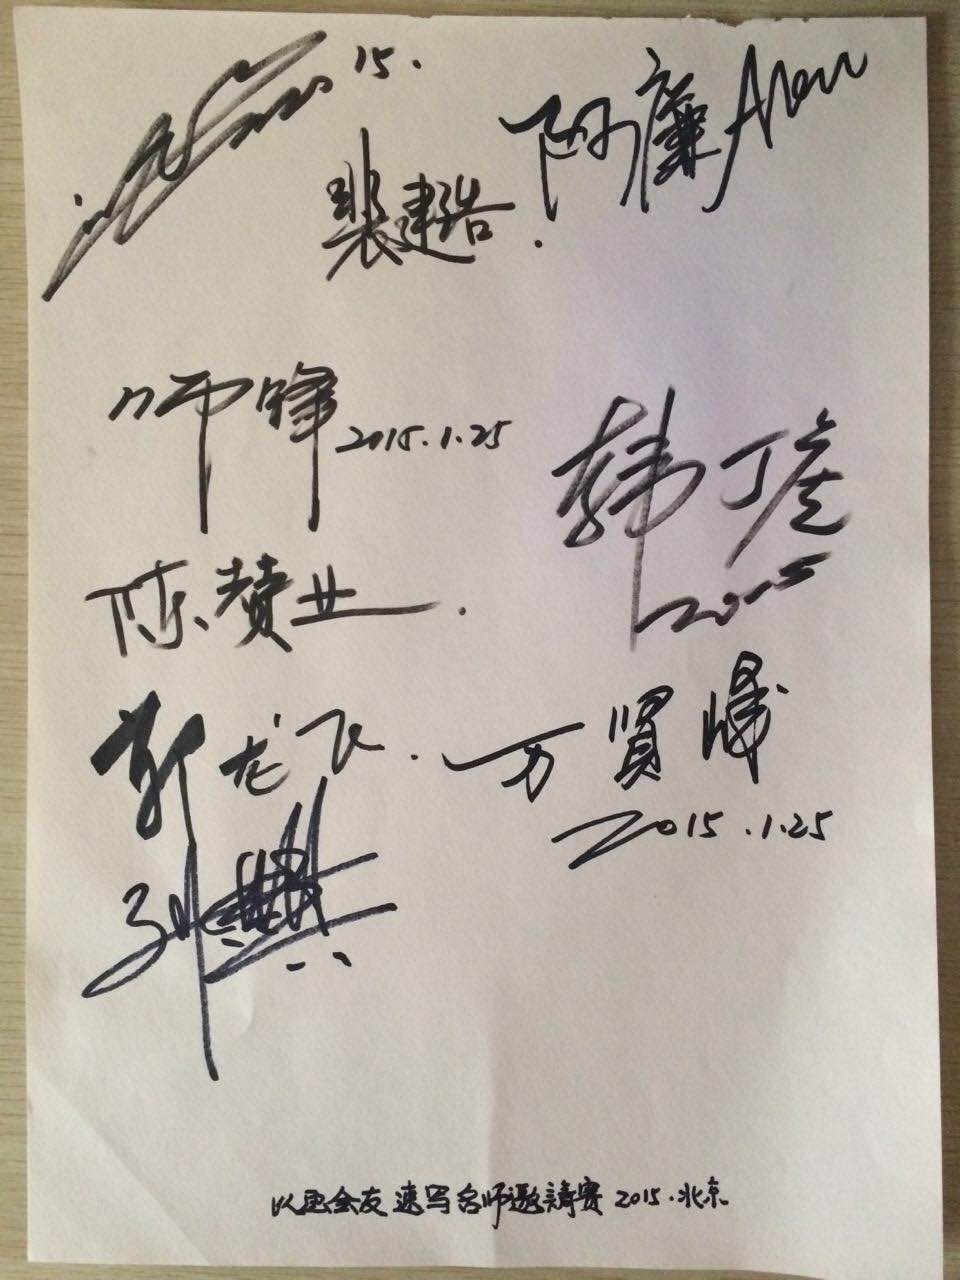 15.
阿廉 Alen
裴建浩.
师锋 2015.1.25
韩丁彦
2015
陈赞业.
郭龙飞.
万贤
2015.1.25
刘
以画会友 速写名师邀請赛 2015.北京